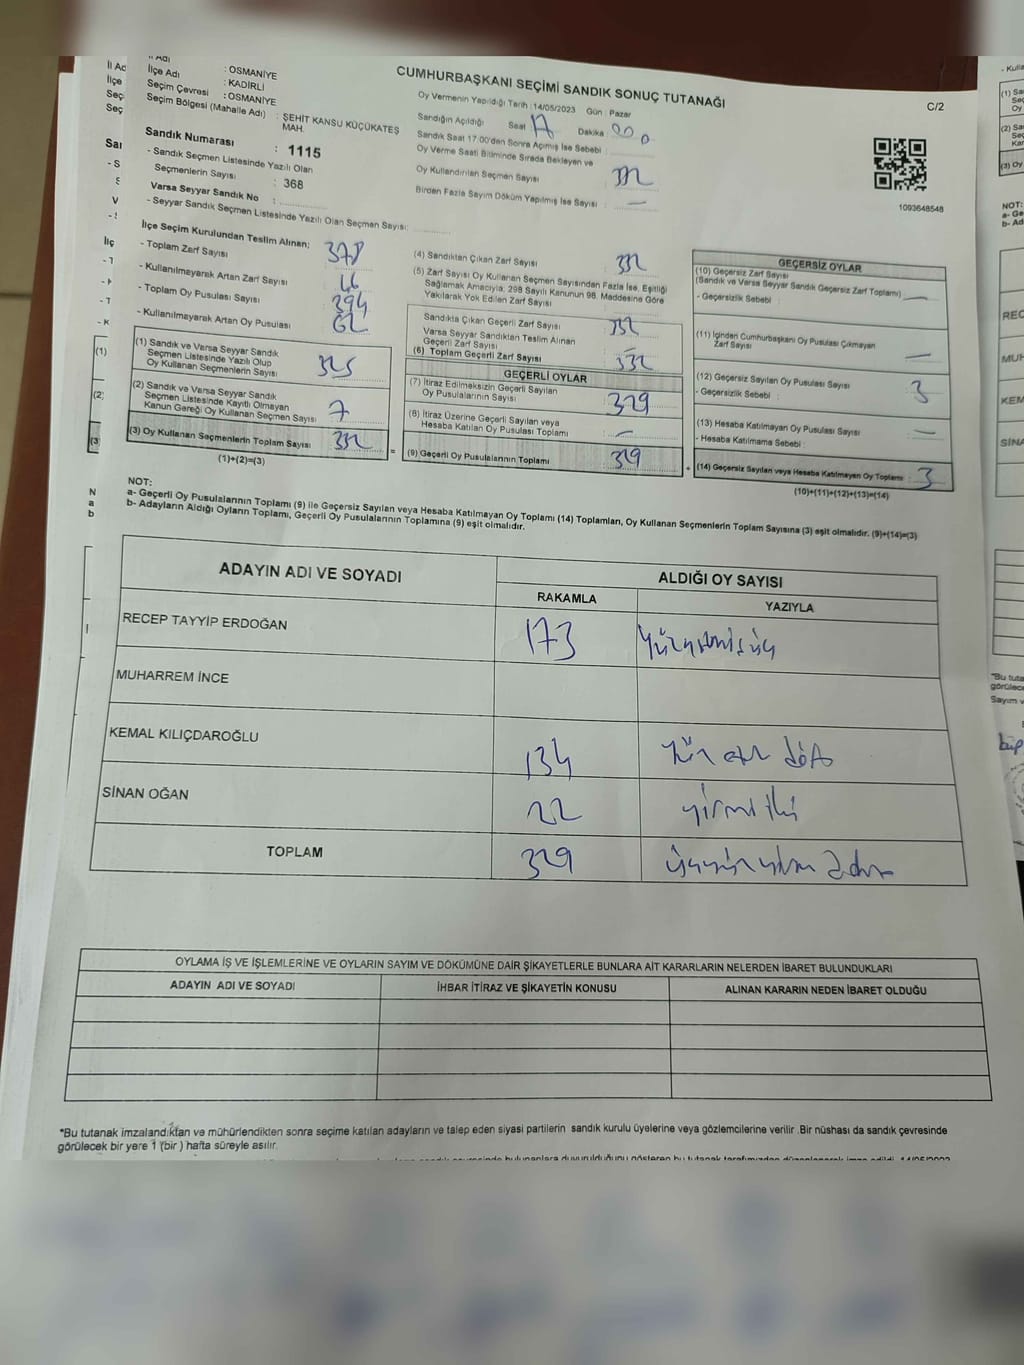 CUMHURBAŞKANI SEÇİMİ SANDIK SONUÇ TUTANAĞI
C/2
İl Adı : OSMANİYE
İlçe Adı : KADİRLİ
Seçim Çevresi : OSMANİYE
Seçim Bölgesi (Mahalle Adı) : ŞEHİT KANSU KÜÇÜKATEŞ MAH.
Sandık Numarası : 1115
- Sandık Seçmen Listesinde Yazılı Olan
Seçmenlerin Sayısı : 368
Varsa Seyyar Sandık No :
- Seyyar Sandık Seçmen Listesinde Yazılı Olan Seçmen Sayısı:
Oy Vermenin Yapıldığı Tarih : 14/05/2023 Gün : Pazar
Sandığın Açıldığı Saat 17 Dakika
Sandık Saat 17.00'den Sonra Açılmış İse Sebebi :
Oy Verme Saati Bitiminde Sırada Bekleyen ve
Oy Kullandırılan Seçmen Sayısı : 332
Birden Fazla Sayım Döküm Yapılmış İse Sayısı : —
1093648548
İlçe Seçim Kurulundan Teslim Alınan;
- Toplam Zarf Sayısı 378
- Kullanılmayarak Artan Zarf Sayısı 46
- Toplam Oy Pusulası Sayısı 394
- Kullanılmayarak Artan Oy Pusulası 62
(1) Sandık ve Varsa Seyyar Sandık
Seçmen Listesinde Yazılı Olup
Oy Kullanan Seçmenlerin Sayısı : 325
(2) Sandık ve Varsa Seyyar Sandık
Seçmen Listesinde Kayıtlı Olmayan
Kanun Gereği Oy Kullanan Seçmen Sayısı : 7
(3) Oy Kullanan Seçmenlerin Toplam Sayısı : 332
(1)+(2)=(3)
(4) Sandıktan Çıkan Zarf Sayısı : 332
(5) Zarf Sayısı Oy Kullanan Seçmen Sayısından Fazla İse, Eşitliği
Sağlamak Amacıyla, 298 Sayılı Kanunun 98. Maddesine Göre
Yakılarak Yok Edilen Zarf Sayısı :
Sandıkta Çıkan Geçerli Zarf Sayısı : 332
Varsa Seyyar Sandıktan Teslim Alınan
Geçerli Zarf Sayısı : —
(6) Toplam Geçerli Zarf Sayısı : 332
GEÇERLİ OYLAR
(7) İtiraz Edilmeksizin Geçerli Sayılan
Oy Pusulalarının Sayısı : 329
(8) İtiraz Üzerine Geçerli Sayılan veya
Hesaba Katılan Oy Pusulası Toplamı : —
(9) Geçerli Oy Pusulalarının Toplamı : 329
GEÇERSİZ OYLAR
(10) Geçersiz Zarf Sayısı
(Sandık ve Varsa Seyyar Sandık Geçersiz Zarf Toplamı) —
- Geçersizlik Sebebi :
(11) İçinden Cumhurbaşkanı Oy Pusulası Çıkmayan
Zarf Sayısı —
(12) Geçersiz Sayılan Oy Pusulası Sayısı : 3
- Geçersizlik Sebebi :
(13) Hesaba Katılmayan Oy Pusulası Sayısı : —
- Hesaba Katılmama Sebebi :
(14) Geçersiz Sayılan veya Hesaba Katılmayan Oy Toplamı : 3
(10)+(11)+(12)+(13)=(14)
NOT:
a- Geçerli Oy Pusulalarının Toplamı (9) ile Geçersiz Sayılan veya Hesaba Katılmayan Oy Toplamı (14) Toplamları, Oy Kullanan Seçmenlerin Toplam Sayısına (3) eşit olmalıdır. (9)+(14)=(3)
b- Adayların Aldığı Oyların Toplamı, Geçerli Oy Pusulalarının Toplamına (9) eşit olmalıdır.
ADAYIN ADI VE SOYADI ALDIĞI OY SAYISI
RAKAMLA YAZIYLA
RECEP TAYYİP ERDOĞAN 173 yüzyetmişüç
MUHARREM İNCE
KEMAL KILIÇDAROĞLU 134 yüz otuz dört
SİNAN OĞAN 22 yirmi iki
TOPLAM 329 üçyüz yirmi dokuz
OYLAMA İŞ VE İŞLEMLERİNE VE OYLARIN SAYIM VE DÖKÜMÜNE DAİR ŞİKAYETLERLE BUNLARA AİT KARARLARIN NELERDEN İBARET BULUNDUKLARI
ADAYIN ADI VE SOYADI İHBAR İTİRAZ VE ŞİKAYETİN KONUSU ALINAN KARARIN NEDEN İBARET OLDUĞU
*Bu tutanak imzalandıktan ve mühürlendikten sonra seçime katılan adayların ve talep eden siyasi partilerin sandık kurulu üyelerine veya gözlemcilerine verilir .Bir nüshası da sandık çevresinde
görülecek bir yere 1 (bir ) hafta süreyle asılır.